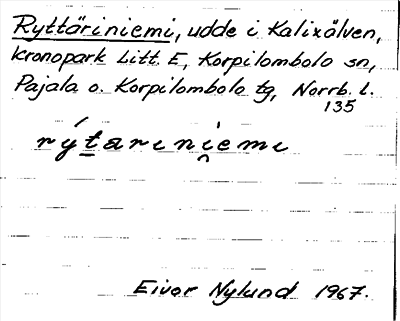 Ryttäriniemi, udde i Kalixälven,
kronopark Litt. E, Korpilombolo sn,
Pajala o. Korpilombolo tg, Norrb. l.
135
rýt̲arini̯emi
Eivor Nylund 1967.